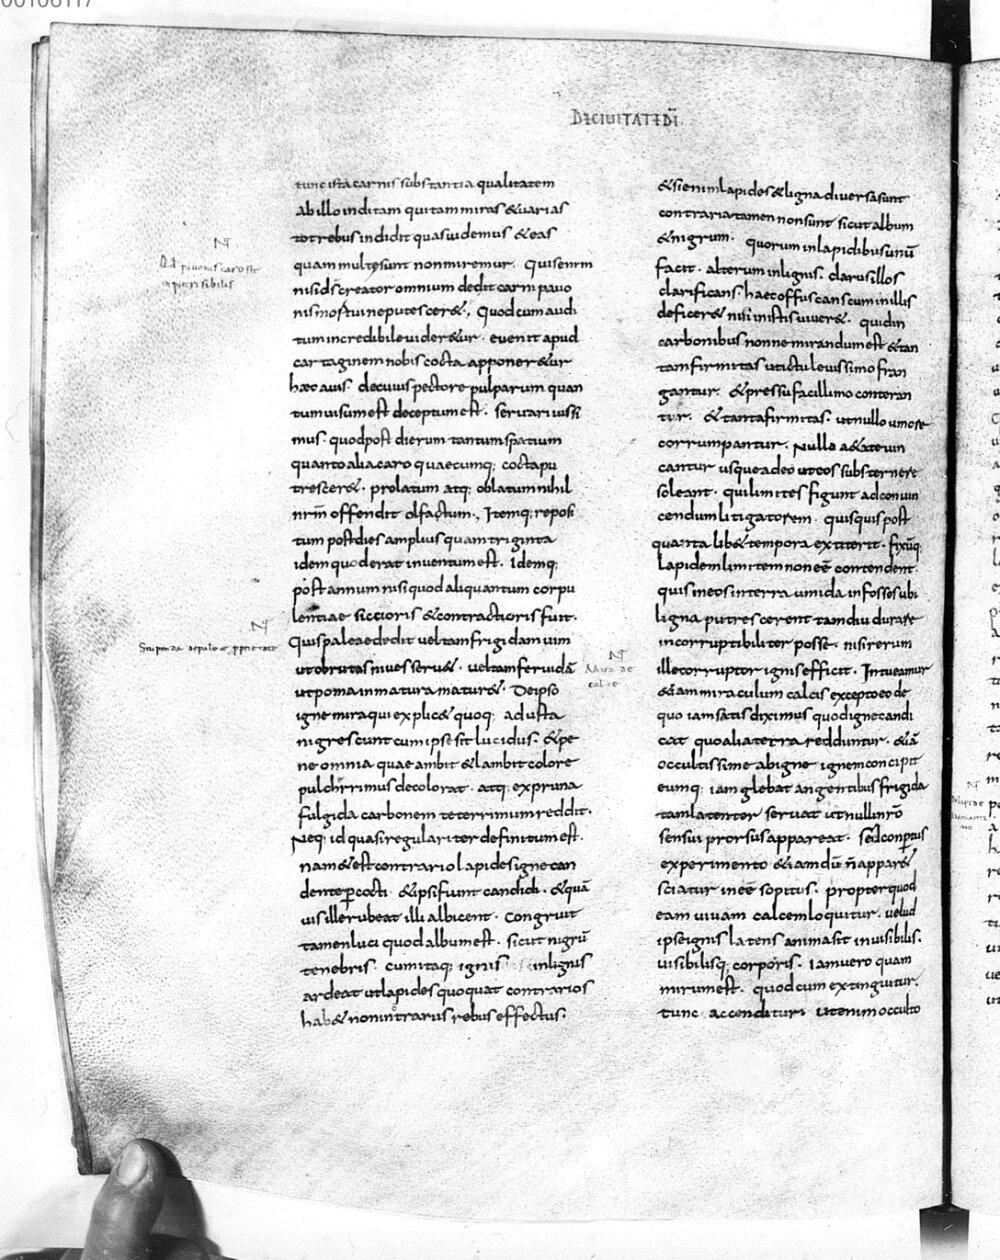 00106117
DE CIUITATE DI
tunc ista carnis substantia qualitatem
ab illo inditam qui tam miras & uarias
tot rebus indidit quas uidemus & eas
quam multe sunt non miremur. Quis enim
nisi ds creator omnium dedit carni pauo
nis mortui ne putescer&. Quod cum audi
tum incredibile uider&ur. euenit apud
cartaginem nobis cocta apponer&ur
haec auis. de cuius pectore pulparum quan
tum uisum est deceptum est. seruari iussi
mus. quod post dierum tantum spatium
quanto alia caro quaecumq; cocta pu
trescer&. prolatum atq; oblatum nihil
nrm offendit olfactum. Itemq; reposi
tum post dies amplius quam triginta
idem quod erat inuentum est. Idemq;
post annum nisi quod aliquantum corpu
lentiae siccioris & contractioris fuit.
Quis paleae dedit uel tam frigidam uim
ut obrutas niues seru&. uel tam feruidā
ut poma inmatura matur&. De ipso
igne mira qui explic& quoq; adusta
nigrescunt cum ipse sit lucidus. & pe
ne omnia quae ambit & lambit colore
pulcherrimus decolorat. atq; ex pruna
fulgida carbonem teterrimum reddit.
Neq; id quasi regulariter definitum est.
nam & e contrario lapides igne can
dente percocti. & ipsi fiunt candidi. & quā
uis ille rubeat illi albicent. Congruit
tamen luci quod album est. sicut nigrū
tenebris. cum itaq; ignis in lignis
ardeat ut lapides quoquat contrarios
hab& non in contrariis rebus effectus.
Quod pauonis caro sit
inputrisibilis
Stupenda de paleae pprietate
& si enim lapides & ligna diuersa sunt
contraria tamen non sunt sicut album
& nigrum. quorum in lapidibus unū
facit. alterum in lignis. clarus illos
clarificans. haec offuscans cum in illis
deficer& nisi in istis uiuer&. quid in
carbonibus nonne mirandum est & tan
ta infirmitas ut ictu leuissimo fran
gantur. & pressu facillimo conteran
tur. & tanta firmitas. ut nullo umore
corrumpantur. Nulla a&ate uin
cantur usque adeo ut eos substernere
soleant. qui limites figunt ad conuin
cendum litigatorem. quisquis post
quantalib& tempora extiterit. fixūq;
lapidem limitem non eē contendent.
quis in eos in terra umida infossos ubi
ligna putrescerent tam diu durare
incorruptibiliter posse. nisi rerum
ille corruptor ignis efficit. Intueamur
&iam miraculum calcis excepto eo de
quo iam satis diximus quod igne candi
cat quo alia t&ra redduntur. &iā
occultissime ab igne ignem concipit
eumq; iam gleba tangentibus frigida
tam latenter seruat ut nulli nrō
sensui prorsus appareat. sed conptus
experimento &iam dū ñ appar&
sciatur inēe sopitus. propter quod
eam uiuam calcem loquitur. uelud
ipse ignis latens anima sit inuisibilis.
uisibilisq; corporis. Iam uero quam
mirum est. quod cum extinguitur.
tunc accenditur. Ut enim occulto
Mira de
calce